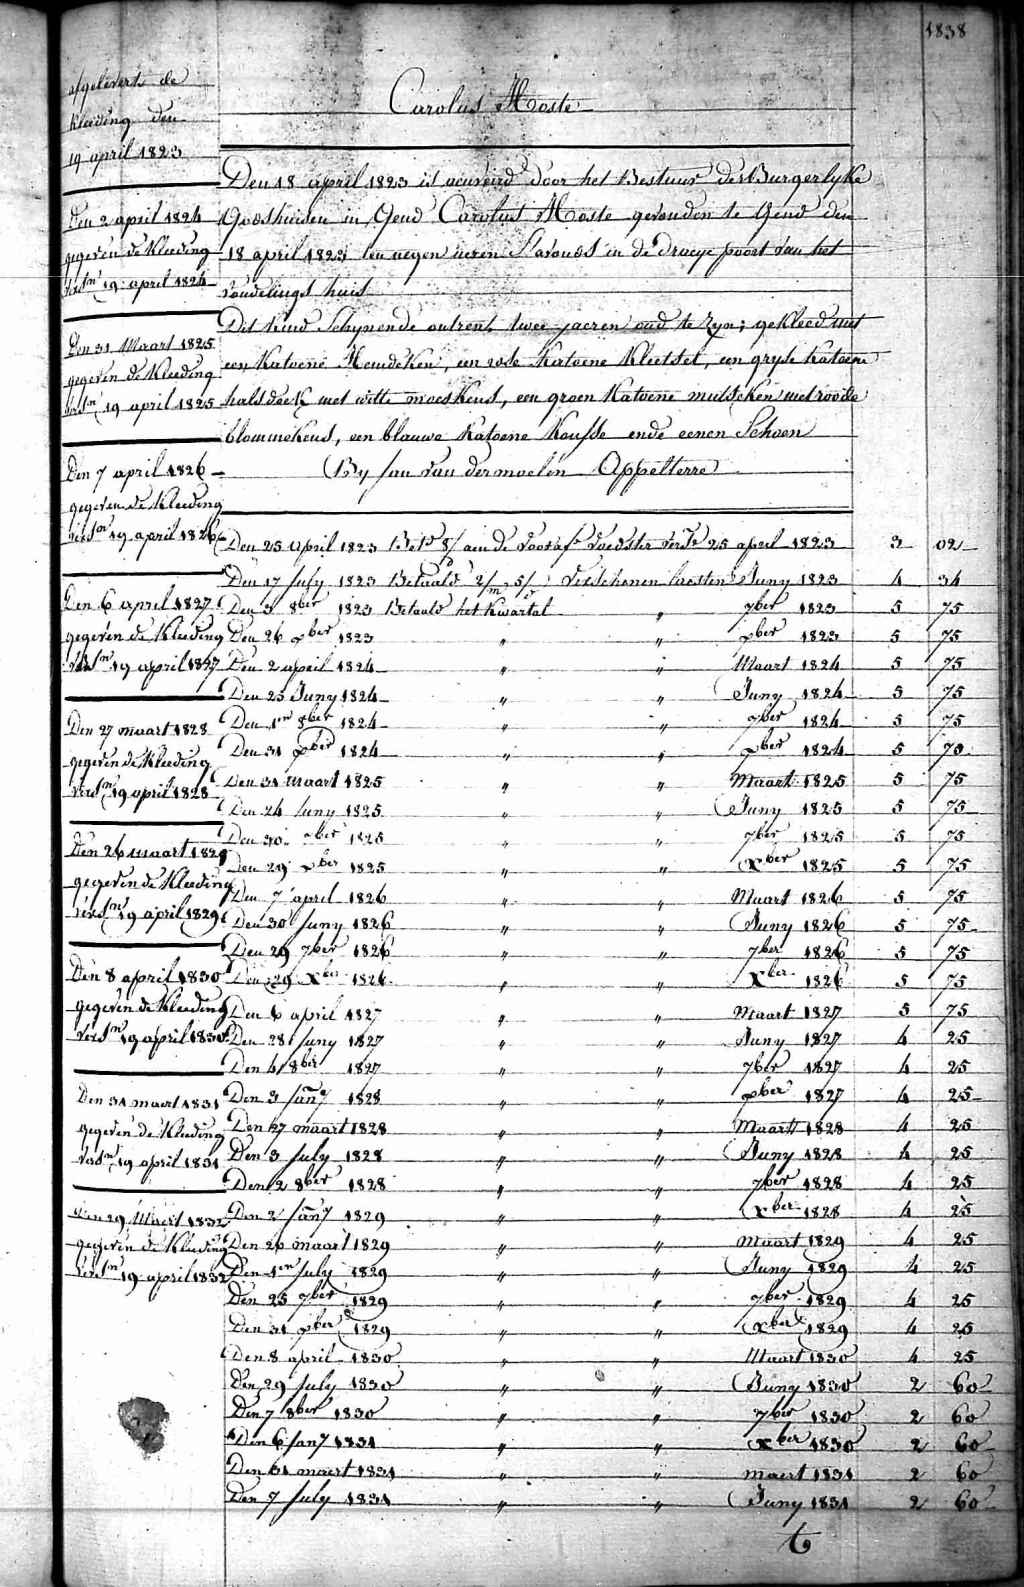 1838
afgelevert de
kleeding den
19 april 1823
Den 2 april 1824
gegeven de kleeding
versn 19 april 1824
Den 31 Maart 1825
gegeven de kleeding
versn 19 april 1825
Den 7 april 1826
gegeven de kleeding
versn 19 april 1826
Den 6 april 1827
gegeven de kleeding
versn 19 april 1827
Den 27 maart 1828
gegeven de kleeding
versn 19 april 1828
Den 26 maart 1829
gegeven de kleeding
versn 19 april 1829
Den 8 april 1830
gegeven de kleeding
versn 19 april 1830
Den 31 maert 1831
gegeven de kleeding
versn 19 april 1831
Den 29 Maert 1832
gegeven de kleeding
versn 19 april 1832
Carolus Moste
Den 18 april 1823 is door het Bestuur der Burgerlyke
Godshuisen in Gend Carolus Moste gevonden te Gend den
18 april 1823 ten negen uren S'avonds in de draeye poort van het
vondelings huis
Dit kind Schynende ontrent twee jaeren oud te zyn; gekleed met
een katoene Hemdeken, een rode katoene kleetset, een gryse katoene
halsdoek met witte moeskens, een groen katoene mutseken met roode
blommekens, een blauwe katoene kousse ende eenen Schoen
By Jan van dermoelen Appelterre
Den 25 april 1823 Betd 8/ aen de vooraf voedster 25 april 1823 3 02
Den 17 July 1823 Betaald 2/m 5/d verschenen laesten Juny 1823 4 34
Den 3 8ber 1823 Betaald het kwartal " 7ber 1823 5 75
Den 26 xber 1823 " " xber 1823 5 75
Den 2 april 1824 " " Maart 1824 5 75
Den 25 Juny 1824 " " Juny 1824 5 75
Den 1en 8ber 1824 " " 7ber 1824 5 75
Den 31 xber 1824 " " xber 1824 5 70
Den 31 maart 1825 " " Maart 1825 5 75
Den 24 Juny 1825 " " Juny 1825 5 75
Den 30 7ber 1825 " " 7ber 1825 5 75
Den 29 xber 1825 " " Xber 1825 5 75
Den 7 april 1826 " " Maart 1826 5 75
Den 30 Juny 1826 " " Juny 1826 5 75
Den 29 7ber 1826 " " 7ber 1826 5 75
Den 29 Xber 1826 " " Xber 1826 5 75
Den 6 april 1827 " " Maart 1827 5 75
Den 28 Juny 1827 " " Juny 1827 4 25
Den 4 8ber 1827 " " 7ber 1827 4 25
Den 3 Jany 1828 " " xber 1827 4 25
Den 27 maart 1828 " " Maart 1828 4 25
Den 3 July 1828 " " Juny 1828 4 25
Den 2 8ber 1828 " " 7ber 1828 4 25
Den 2 Jany 1829 " " Xber 1828 4 25
Den 26 maart 1829 " " Maart 1829 4 25
Den 1en July 1829 " " Juny 1829 4 25
Den 25 7ber 1829 " " 7ber 1829 4 25
Den 31 xber 1829 " " Xber 1829 4 25
Den 8 april 1830 " " Maart 1830 4 25
Den 29 July 1830 " " Juny 1830 2 60
Den 7 8ber 1830 " " 7ber 1830 2 60
Den 6 Jany 1831 " " Xber 1830 2 60
Den 31 maert 1831 " " maert 1831 2 60
Den 7 July 1831 " " Juny 1831 2 60